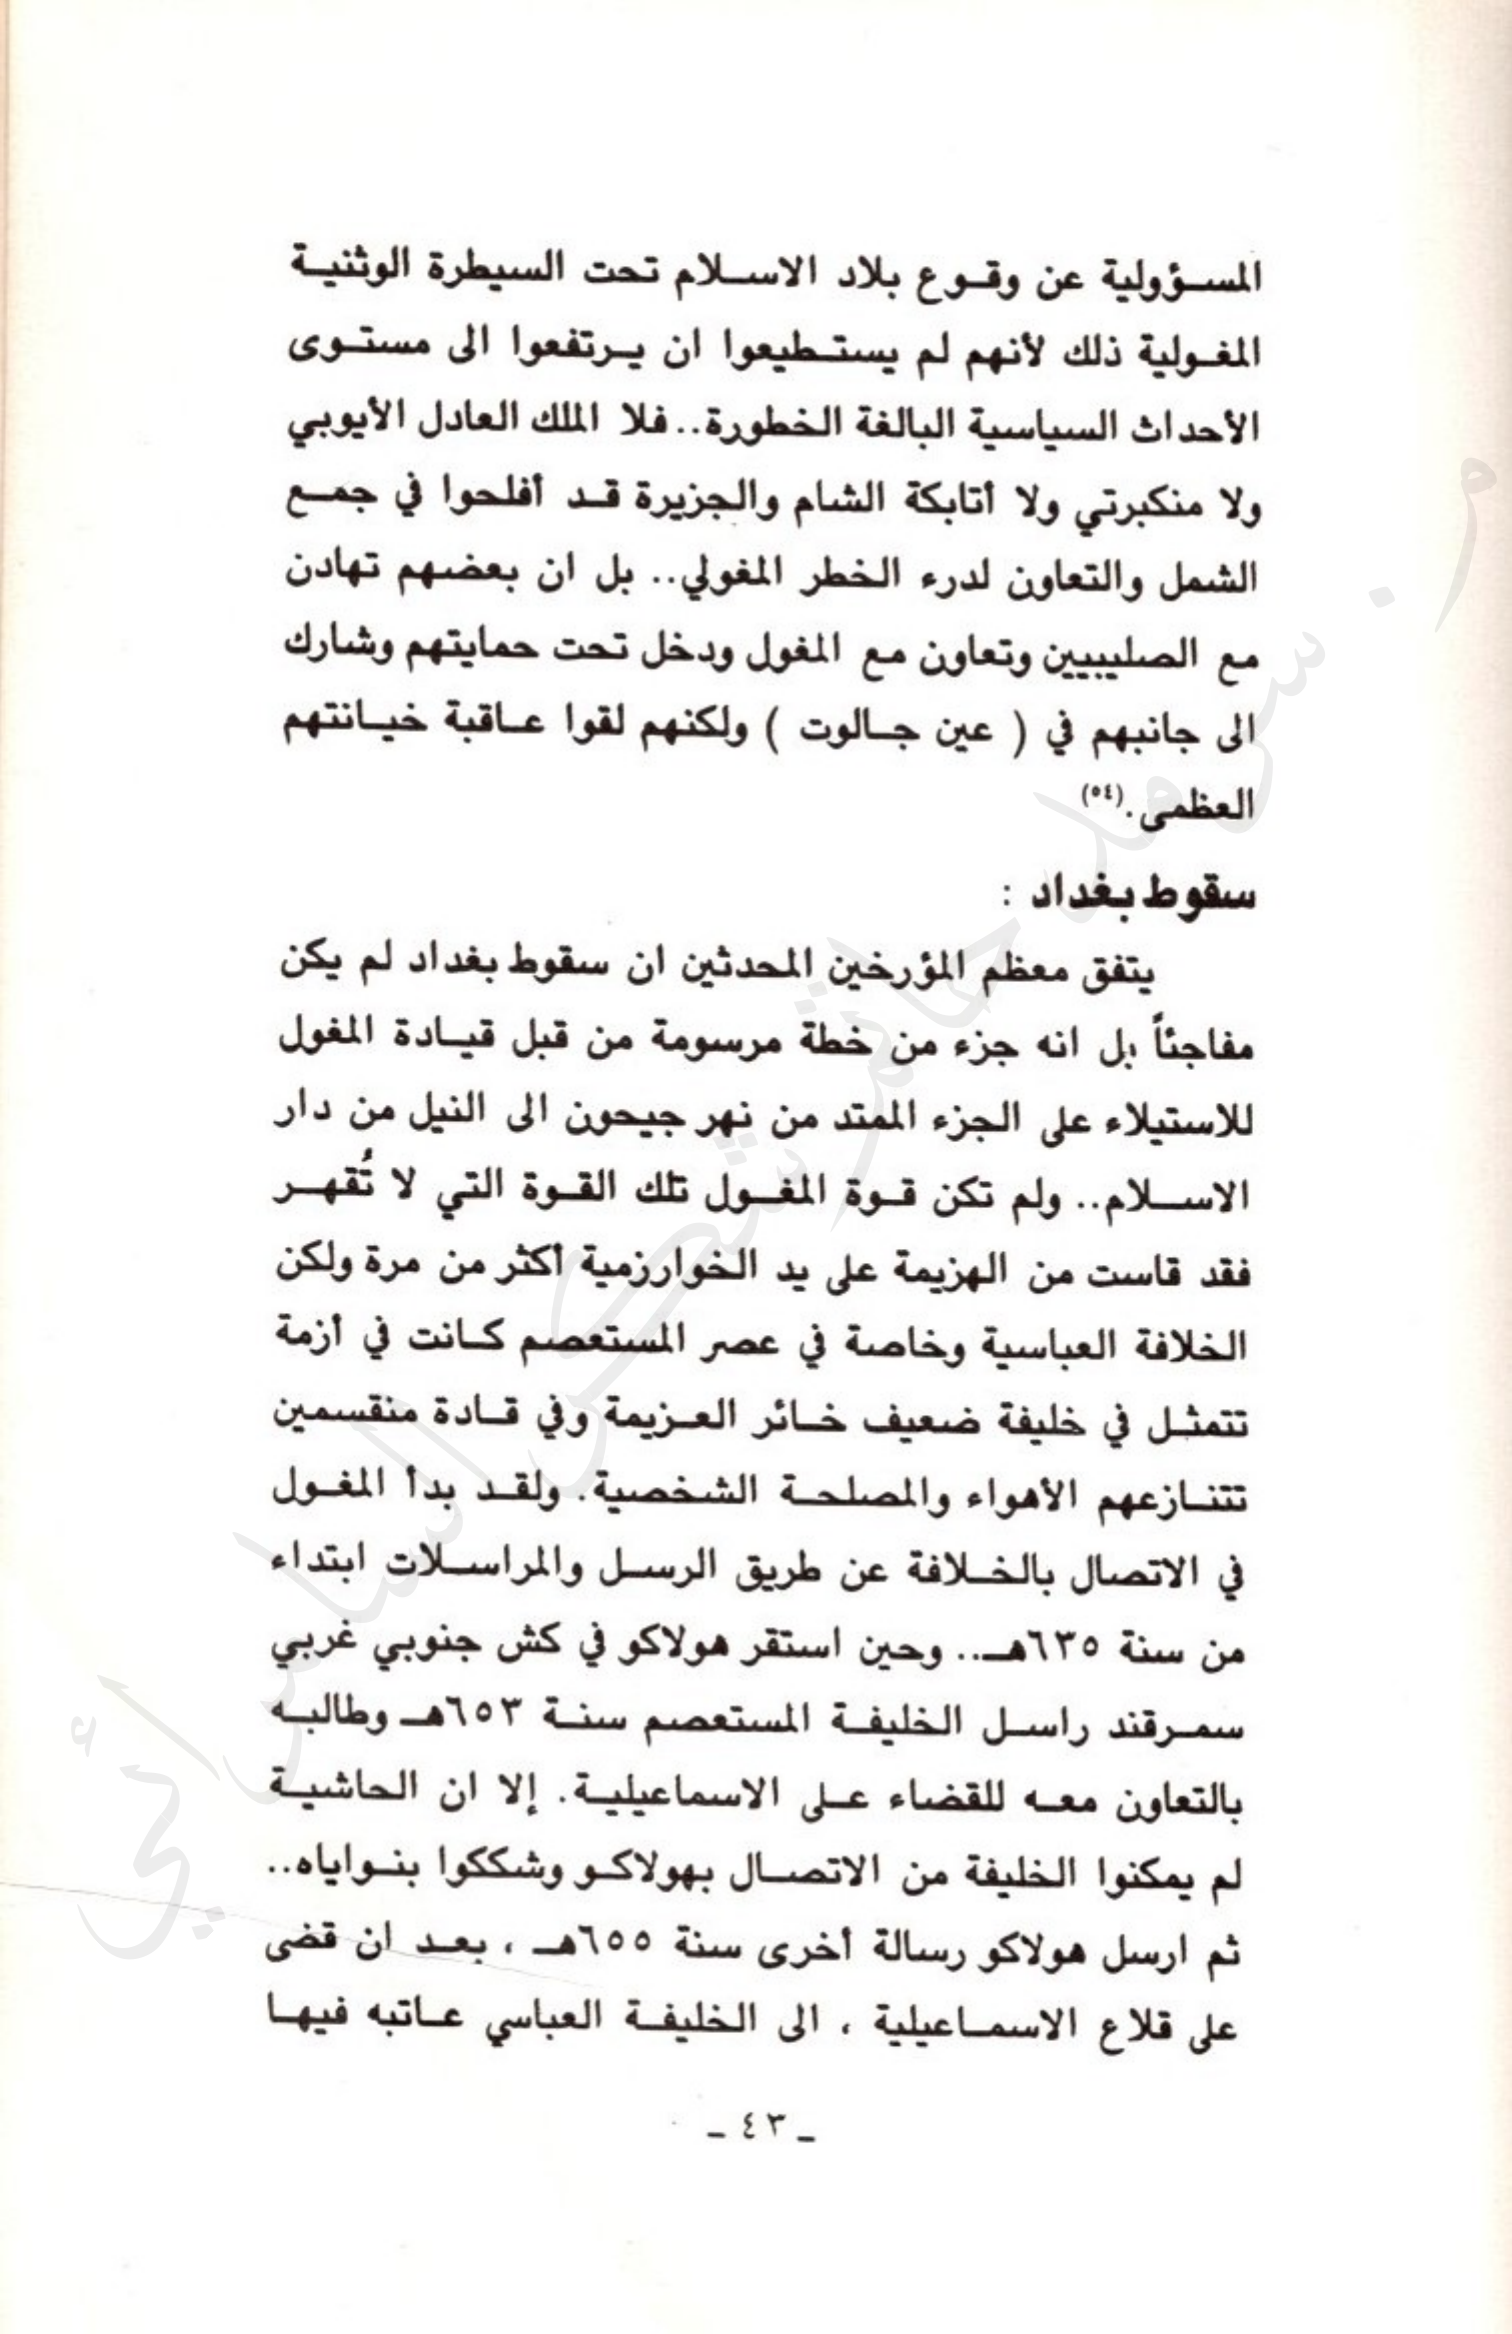 المسؤولية عن وقوع بلاد الاسلام تحت السيطرة الوثنية
المغولية ذلك لأنهم لم يستطيعوا ان يرتفعوا الى مستوى
الأحداث السياسية البالغة الخطورة.. فلا الملك العادل الأيوبي
ولا منكبرتي ولا أتابكة الشام والجزيرة قد أفلحوا في جمع
الشمل والتعاون لدرء الخطر المغولي.. بل ان بعضهم تهادن
مع الصليبيين وتعاون مع المغول ودخل تحت حمايتهم وشارك
الى جانبهم في ( عين جالوت ) ولكنهم لقوا عاقبة خيانتهم
العظمى.(٥٤)
سقوط بغداد :
يتفق معظم المؤرخين المحدثين ان سقوط بغداد لم يكن
مفاجئاً بل انه جزء من خطة مرسومة من قبل قيادة المغول
للاستيلاء على الجزء الممتد من نهر جيحون الى النيل من دار
الاسلام.. ولم تكن قوة المغول تلك القوة التي لا تُقهر
فقد قاست من الهزيمة على يد الخوارزمية أكثر من مرة ولكن
الخلافة العباسية وخاصة في عصر المستعصم كانت في أزمة
تتمثل في خليفة ضعيف خائر العزيمة وفي قادة منقسمين
تتنازعهم الأهواء والمصلحة الشخصية. ولقد بدأ المغول
في الاتصال بالخلافة عن طريق الرسل والمراسلات ابتداء
من سنة ٦٣٥هـ.. وحين استقر هولاكو في كش جنوبي غربي
سمرقند راسل الخليفة المستعصم سنة ٦٥٣هـ وطالبه
بالتعاون معه للقضاء على الاسماعيلية. إلا ان الحاشية
لم يمكنوا الخليفة من الاتصال بهولاكو وشككوا بنواياه..
ثم ارسل هولاكو رسالة أخرى سنة ٦٥٥هـ ، بعد ان قضى
على قلاع الاسماعيلية ، الى الخليفة العباسي عاتبه فيها
ـ ٤٣ ـ
م. سرمد حاتم شكر السامرائي